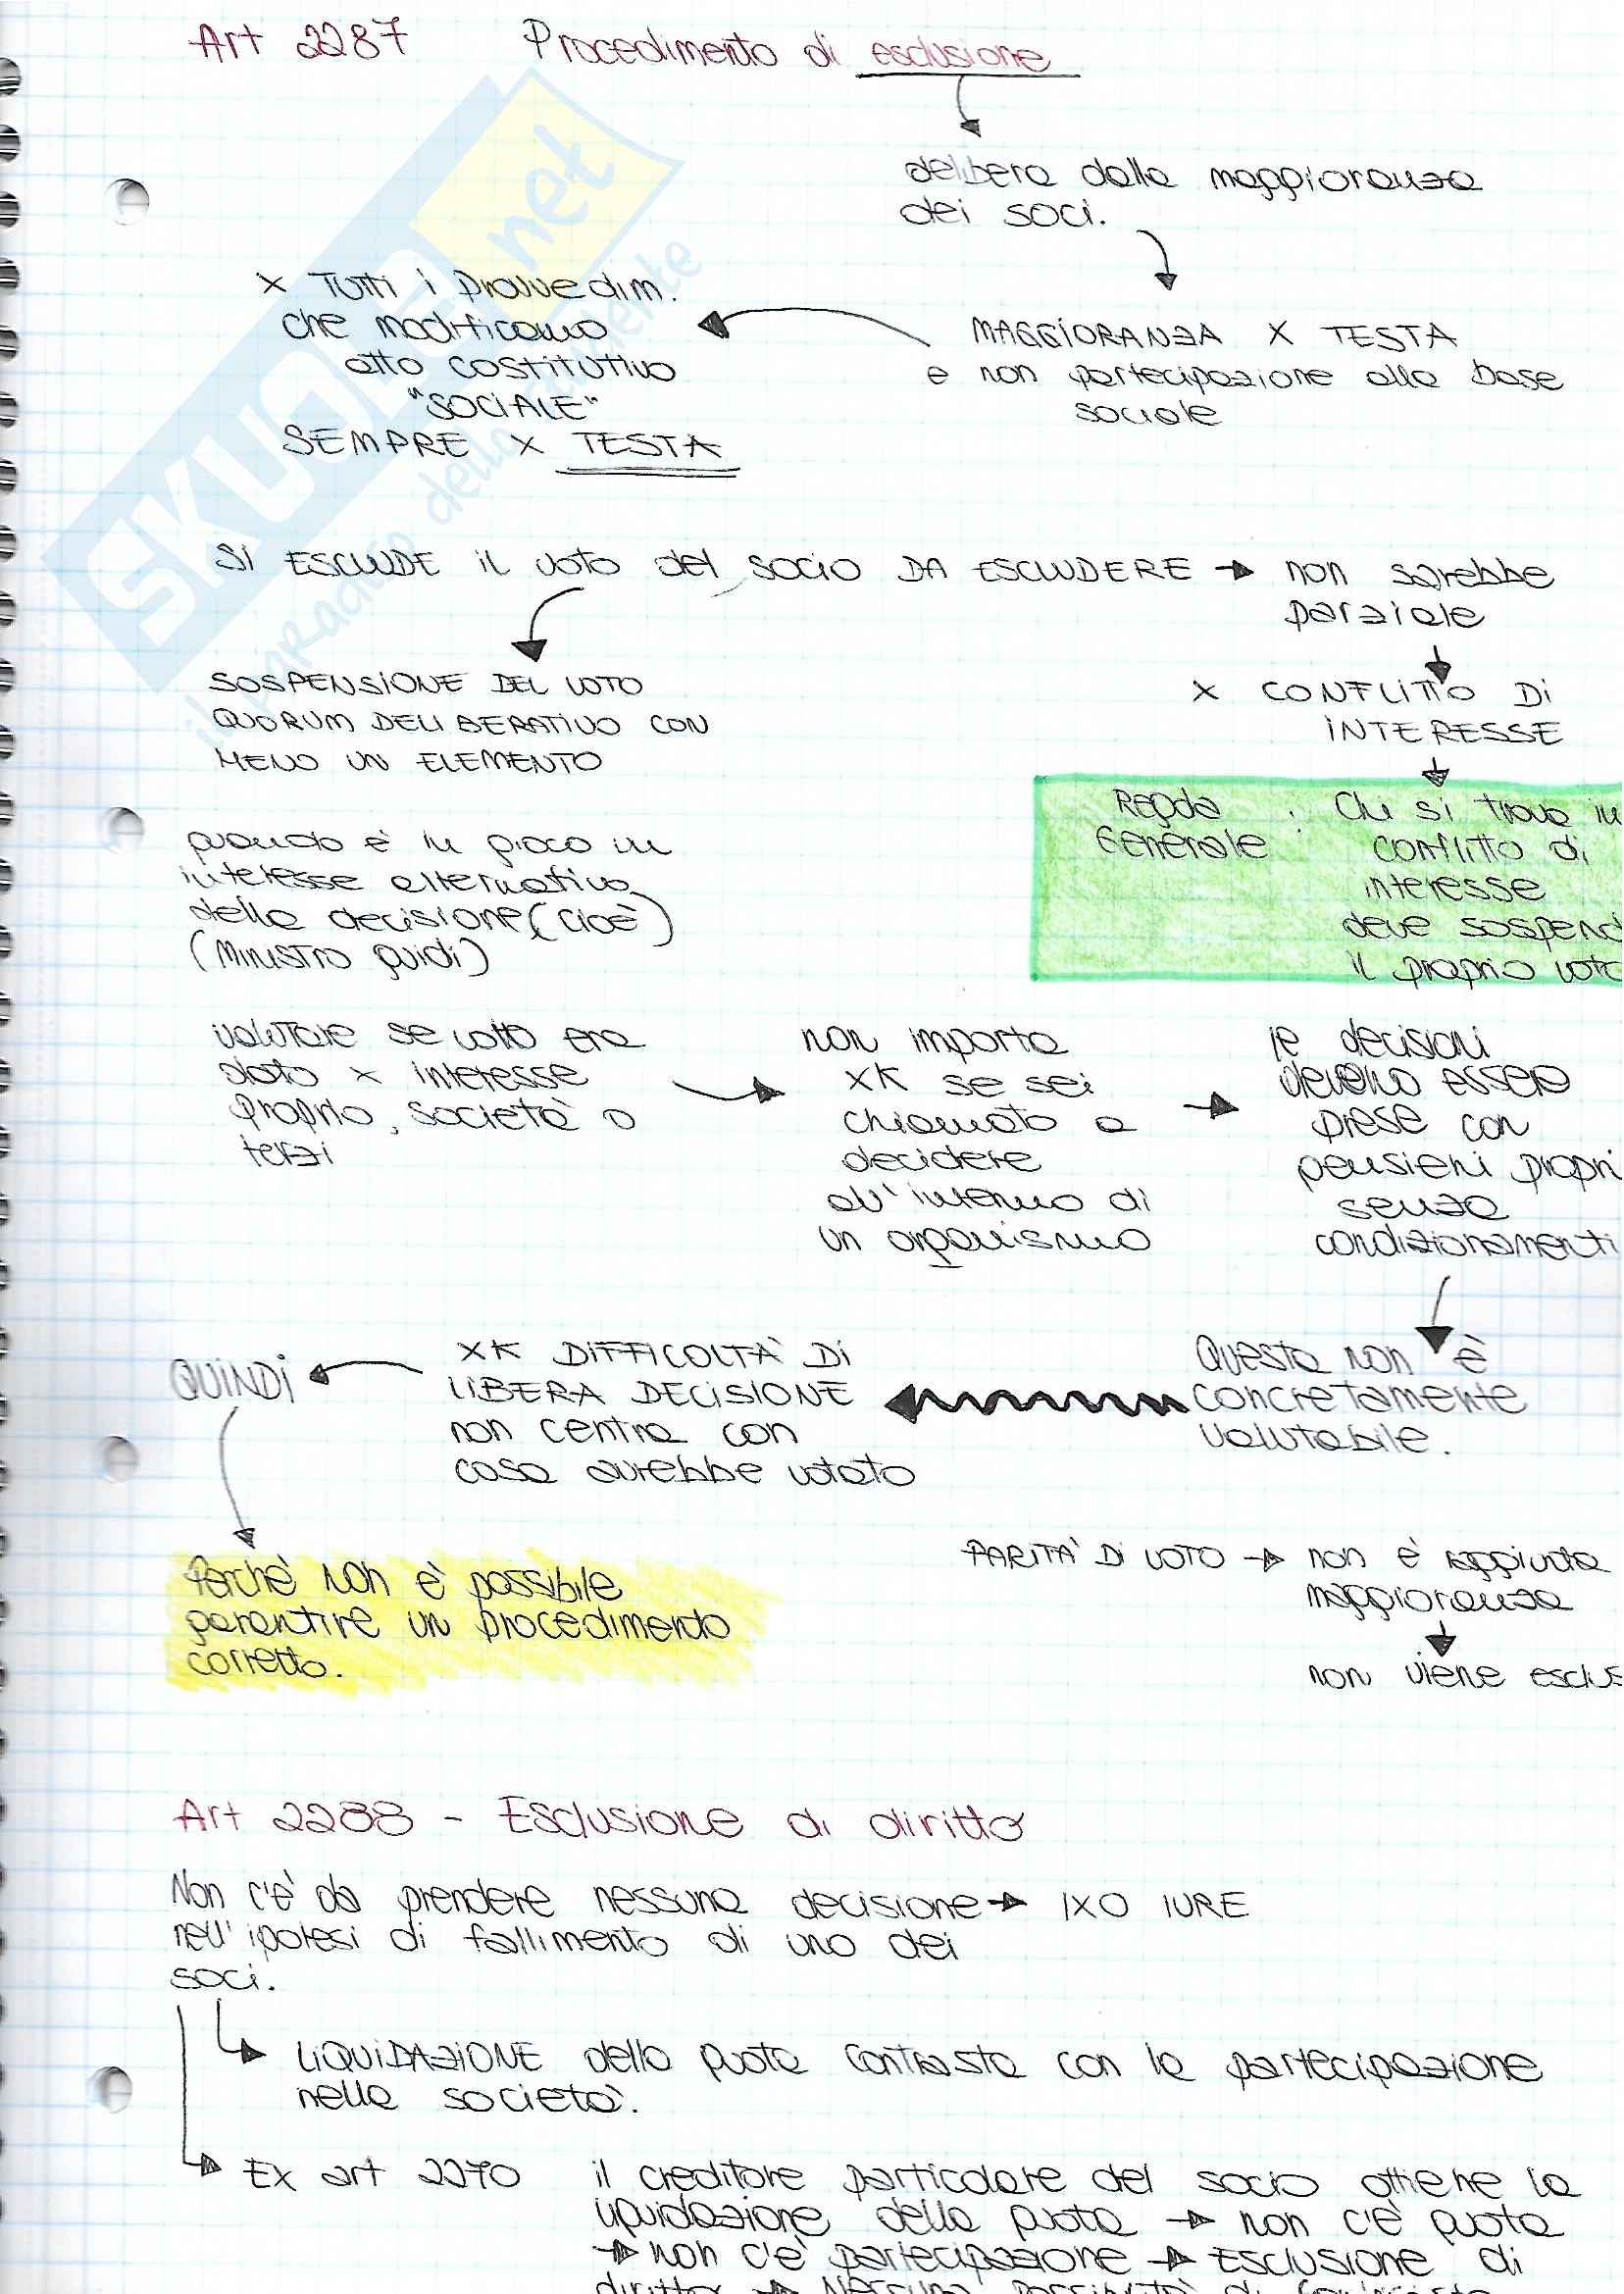 Art 2287 Procedimento di esclusione
delibera dalla maggioranza
dei soci.
MAGGIORANZA X TESTA
e non partecipazione alla base
sociale
X TUTTI i provvedim.
che modificano
atto costitutivo
"SOCIALE"
SEMPRE X TESTA
SI ESCLUDE il voto del socio DA ESCLUDERE → non sarebbe
parziale
X CONFLITTO DI
INTERESSE
SOSPENSIONE DEL VOTO
QUORUM DELIBERATIVO CON
MENO UN ELEMENTO
Regola Generale : Chi si trova in
conflitto di
interesse
deve sospend
il proprio voto
quando è in gioco un
interesse alternativo
della decisione (cioè)
(Ministro guidi)
valutare se voto era
dato x interesse
proprio, società o
terzi
non importa
XK se sei
chiamato a
decidere
all'interno di
un organismo
le decisioni
devono essere
prese con
pensieri propri
senza
condizionamenti
Questo non è
concretamente
valutabile.
XK DIFFICOLTÀ DI
LIBERA DECISIONE
non centra con
cosa avrebbe votato
QUINDI
Perchè non è possibile
garantire un procedimento
corretto.
PARITÀ DI VOTO → non è raggiunta
maggioranza
non viene esclus
Art 2288 - Esclusione di diritto
Non c'è da prendere nessuna decisione → IXO IURE
nell'ipotesi di fallimento di uno dei
soci.
LIQUIDAZIONE della quota contrasta con la partecipazione
nella società.
Ex art 2270 il creditore particolare del socio ottiene la
liquidazione della quota → non c'è quota
→ non c'è partecipazione → ESCLUSIONE di
SKUOLA.net
il paradiso dello studente